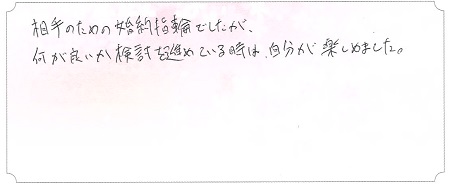 相手のための婚約指輪でしたが、
何が良いか検討を進めている時は、自分が楽しめました。